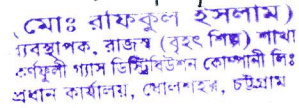 (মোঃ রফিকুল ইসলাম)
ব্যবস্থাপক, রাজস্ব (বৃহৎ শিল্প) শাখা
কর্ণফুলী গ্যাস ডিস্ট্রিবিউশন কোম্পানী লিঃ
প্রধান কার্যালয়, ষোলশহর, চট্টগ্রাম